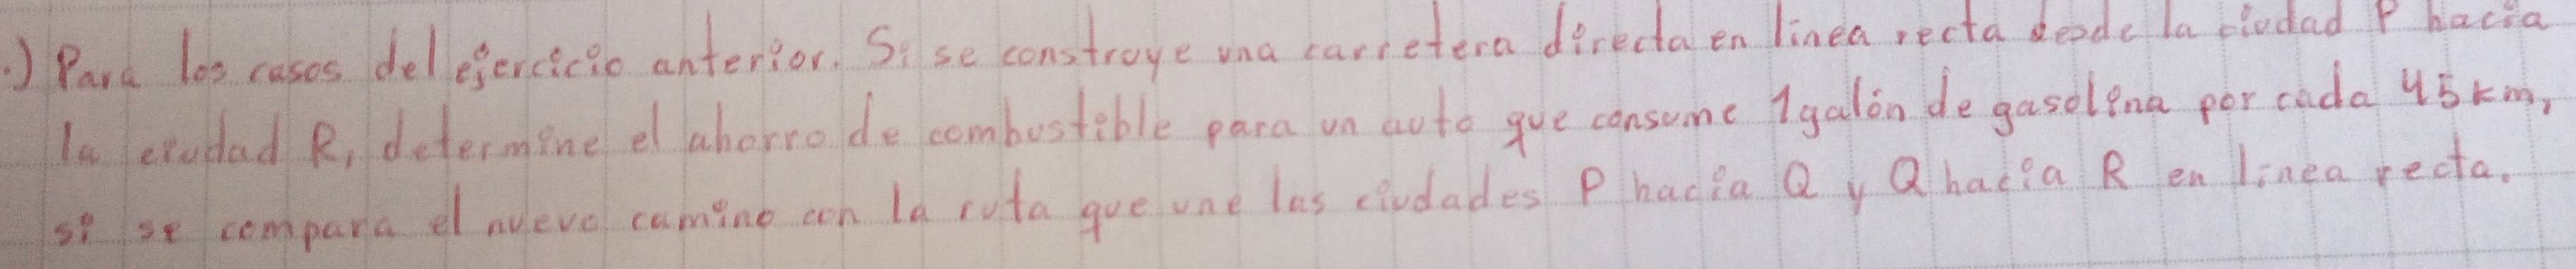 .) Para los casos del ejercicio anterior. Si se construye una carretera directa en linea recta desde la ciudad P hacia
la ciudad R, determine el ahorro de combustible para un auto que consume 1galón de gasolina por cada 45km,
si se compara el nuevo camino con la ruta que une las ciudades P hacia Q y Q hacia R en linea recta.